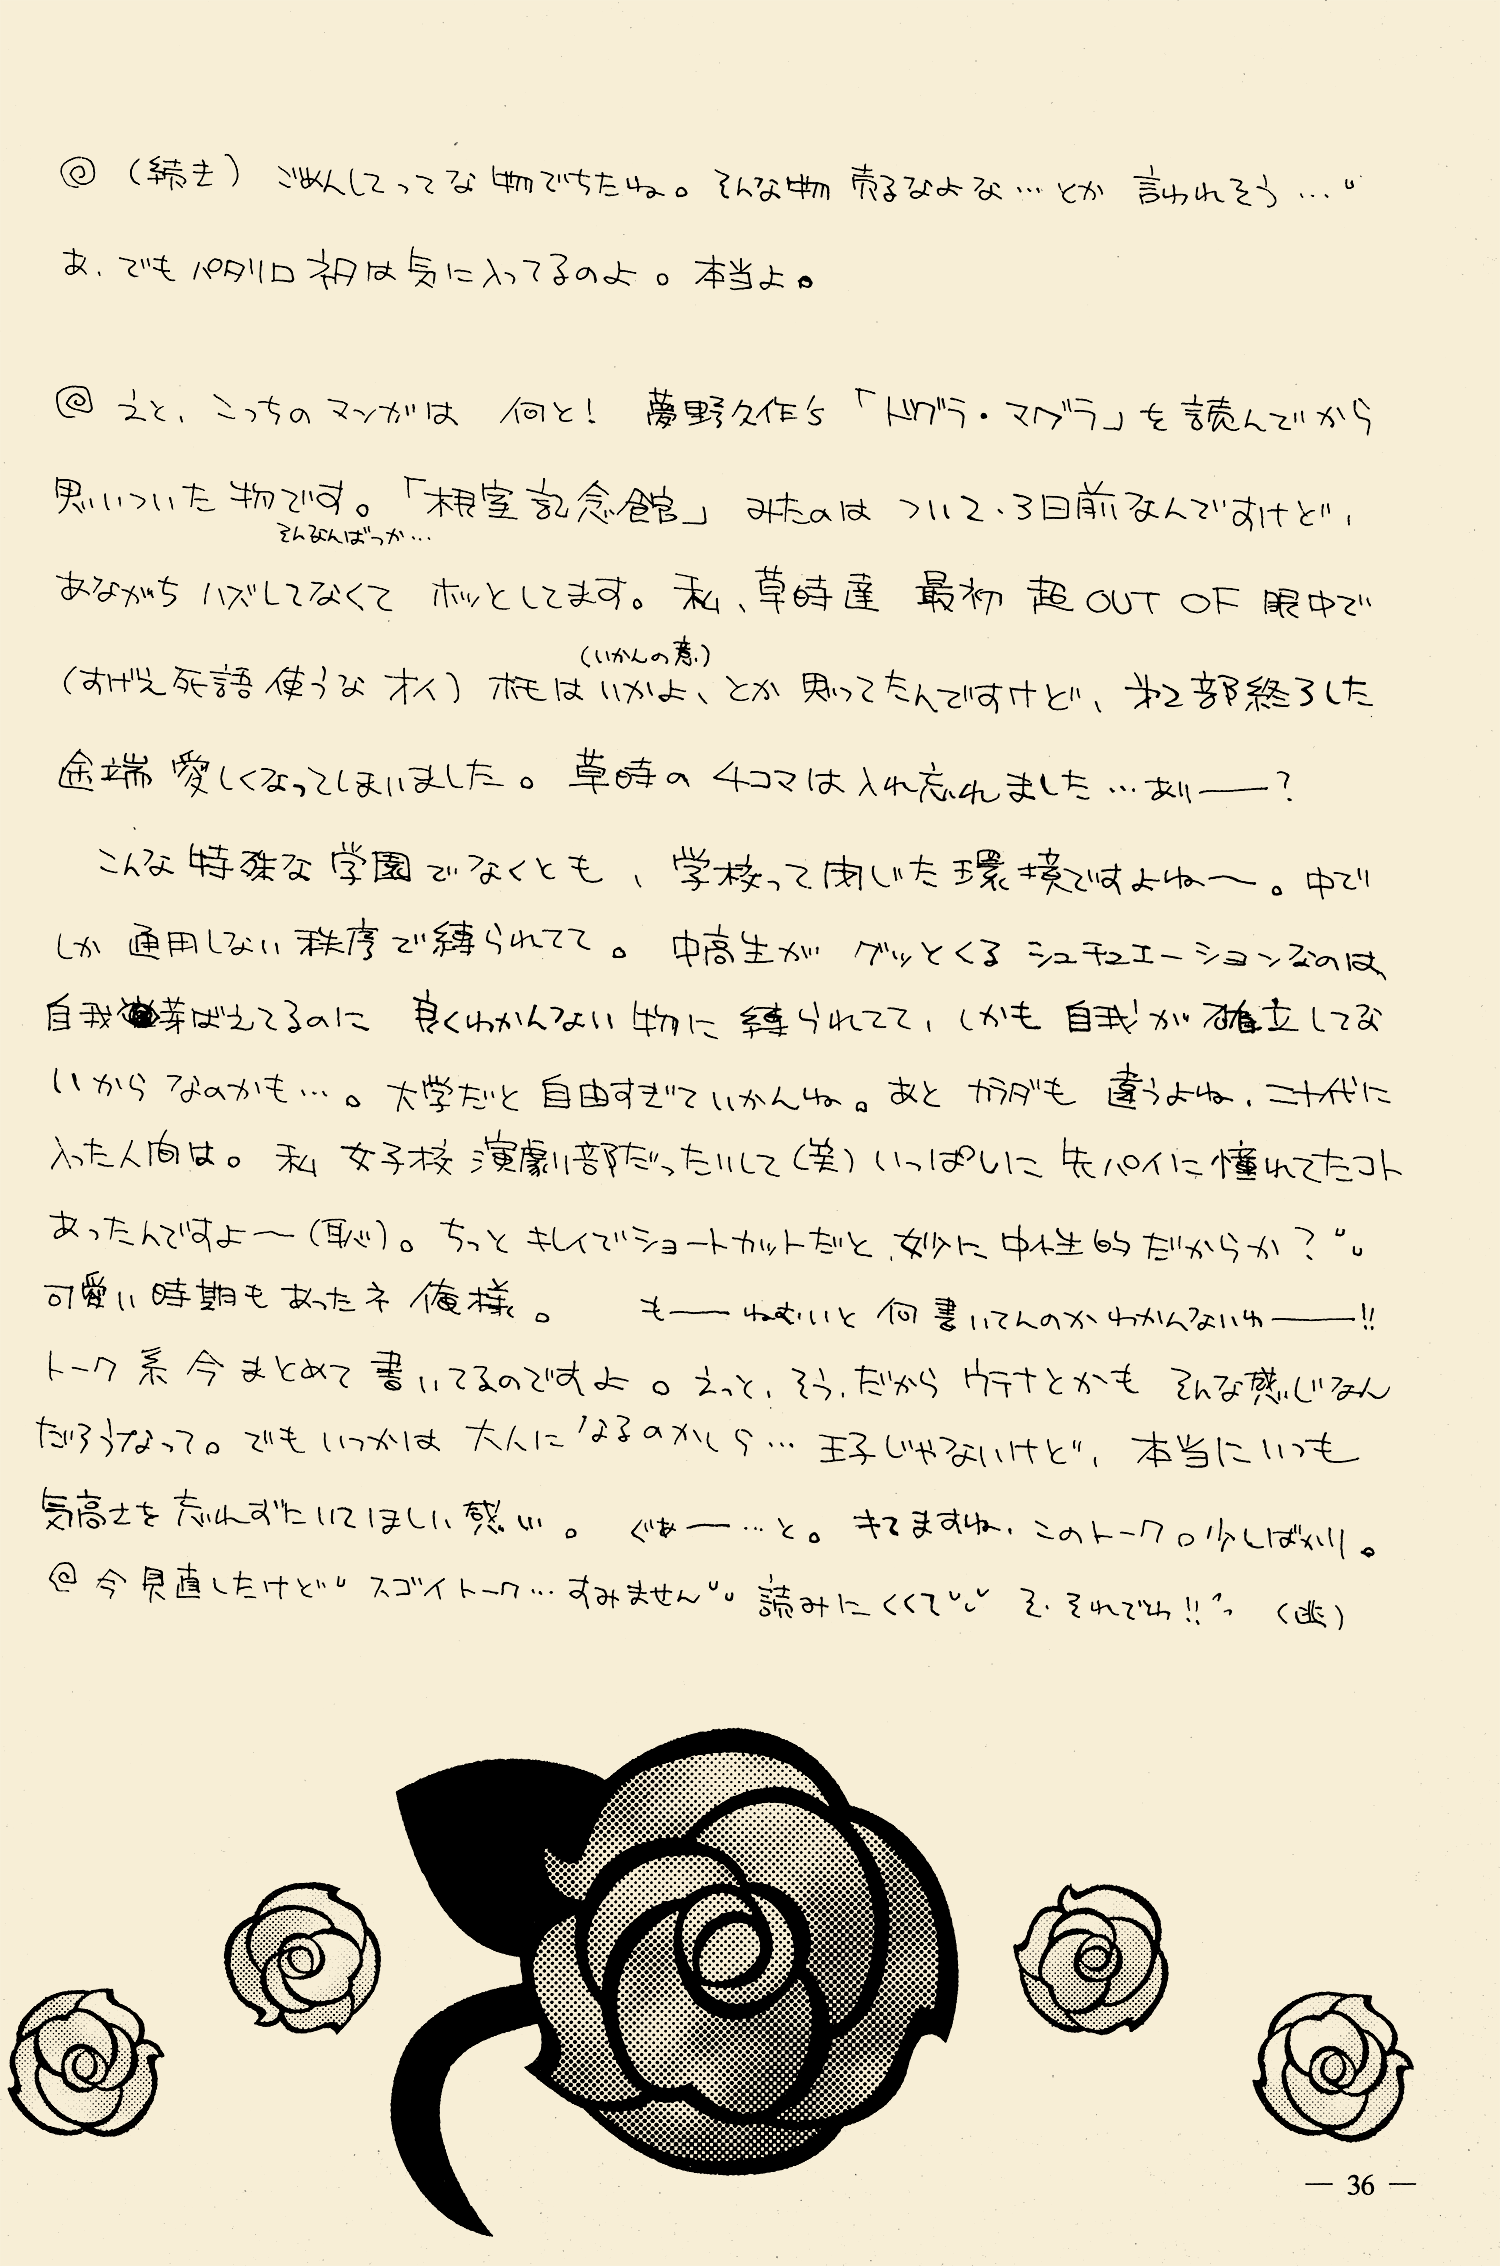 @ (続き) ごめんしてってな物でちたね。そんな物 売るなよな…とか 言われそう…
あ、でもパタリロ初は気に入ってるのよ。本当よ。
@ えと、こっちのマンガは 何と! 夢野久作's「ドグラ・マグラ」を読んでから
思いついた物です。「根室記念館」みたのは つい2、3日前なんですけど、
そんなんばっか…
あながち ハズしてなくて ホッとしてます。私、草時達 最初 超OUT OF 眼中で
(いかんの意)
(すげえ死語使うな オイ) ホモはいかよ、とか 思ってたんですけど、第2部終了した
途端 愛しくなってしまいました。草時の 4コマは入れ忘れました…あり――?
こんな特殊な学園でなくとも、学校って閉じた環境ですよね〜。中で
しか 通用しない秩序で縛られてて。中高生が グッとくる シュチュエーションなのは、
自我芽ばえてるのに 良くわかんない物に縛られてて、しかも自我が確立してな
いからなのかも…。大学だと自由すぎていかんね。あと カラダも 違うよね、二十代に
入った人間は。私 女子校演劇部だったいして(笑) いっぱしに先パイに憧れてたコト
あったんですよ〜(恥)。ちっとキレイでショートカットだと、妙に中性的だからか?
可愛い時期もあったネ 俺様。 も――ねむいと何書いてんのかわかんないわ――!!
トーク系今まとめて書いてるのですよ。えっと、そう、だからウテナとかも そんな感じなん
だろうなって。でもいつかは大人になるのかしら…王子じゃないけど、本当にいつも
気高さを忘れずにいてほしい感い。 ぐあ――…と。キてますね、このトーク。少しばかり。
@ 今見直したけど スゴイトーク…すみません 読みにくくて そ、それでわ!! (逃)
— 36 —